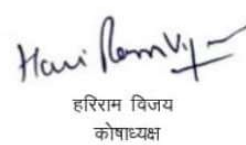 Hari Ram Vij
हरिराम विजय
कोषाध्यक्ष